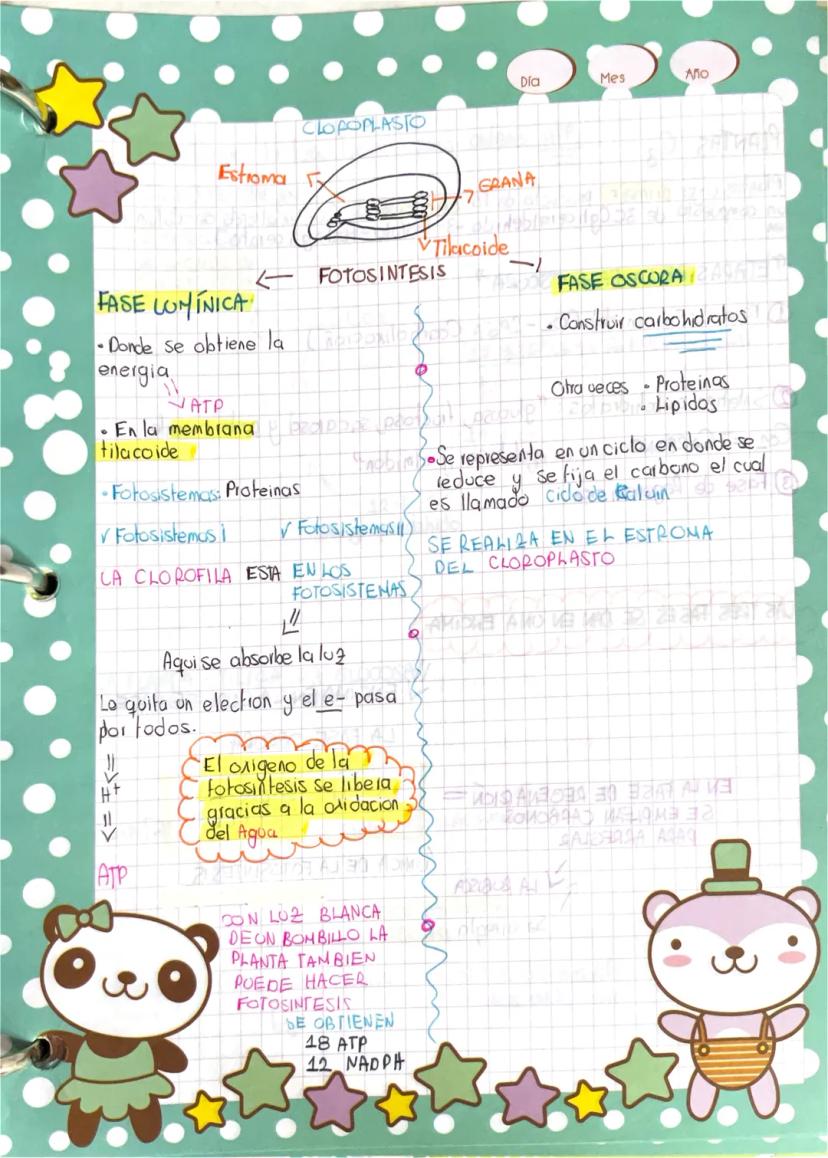 Día
Mes
Año
CLOROPLASTO
Estroma
GRANA
Tilacoide
FOTOSINTESIS
FASE LUMÍNICA
• Donde se obtiene la
energia
ATP
• En la membrana
tilacoide
• Fotosistemas: Proteinas
√ Fotosistemas I
√ Fotosistemas II
LA CLOROFILA ESTA EN LOS
FOTOSISTEMAS
Aqui se absorbe la luz
Le quita un electron y el e- pasa
por todos.
H+
ATP
El oxigeno de la
fotosintesis se libera
gracias a la oxidacion
del Agua
CON LUZ BLANCA
DE UN BOMBILLO LA
PLANTA TAMBIEN
PUEDE HACER
FOTOSINTESIS
SE OBTIENEN
18 ATP
12 NADPH
FASE OSCURA
• Construir carbohidratos
Otra veces • Proteinas
• Lipidos
• Se representa en un ciclo en donde se
reduce y se fija el carbono el cual
es llamado ciclo de Calvin
SE REALIZA EN EL ESTROMA
DEL CLOROPLASTO